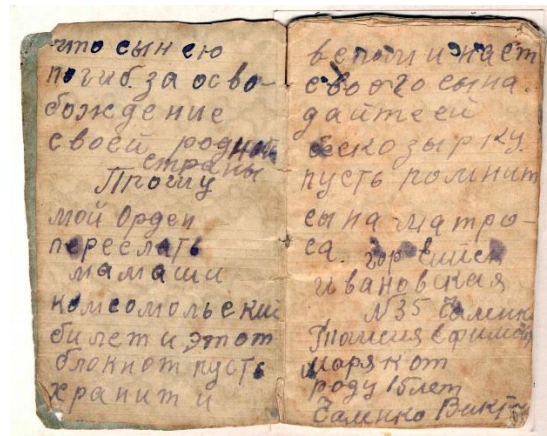 что сын ею
погиб за осво-
бождение
своей родной
страны
Прошу
мой Орден
переслать
мамаши
комсомольский
билет и этот
блокнот пусть
хранит и
вспоминает
своего сына.
дайте ей
бескозырку.
пусть помнит
сына-матро-
са. гор ейск
ивановская
№35 Чаленко
Таисия ефимов
моряк от
роду 15 лет
Чаленко Викт